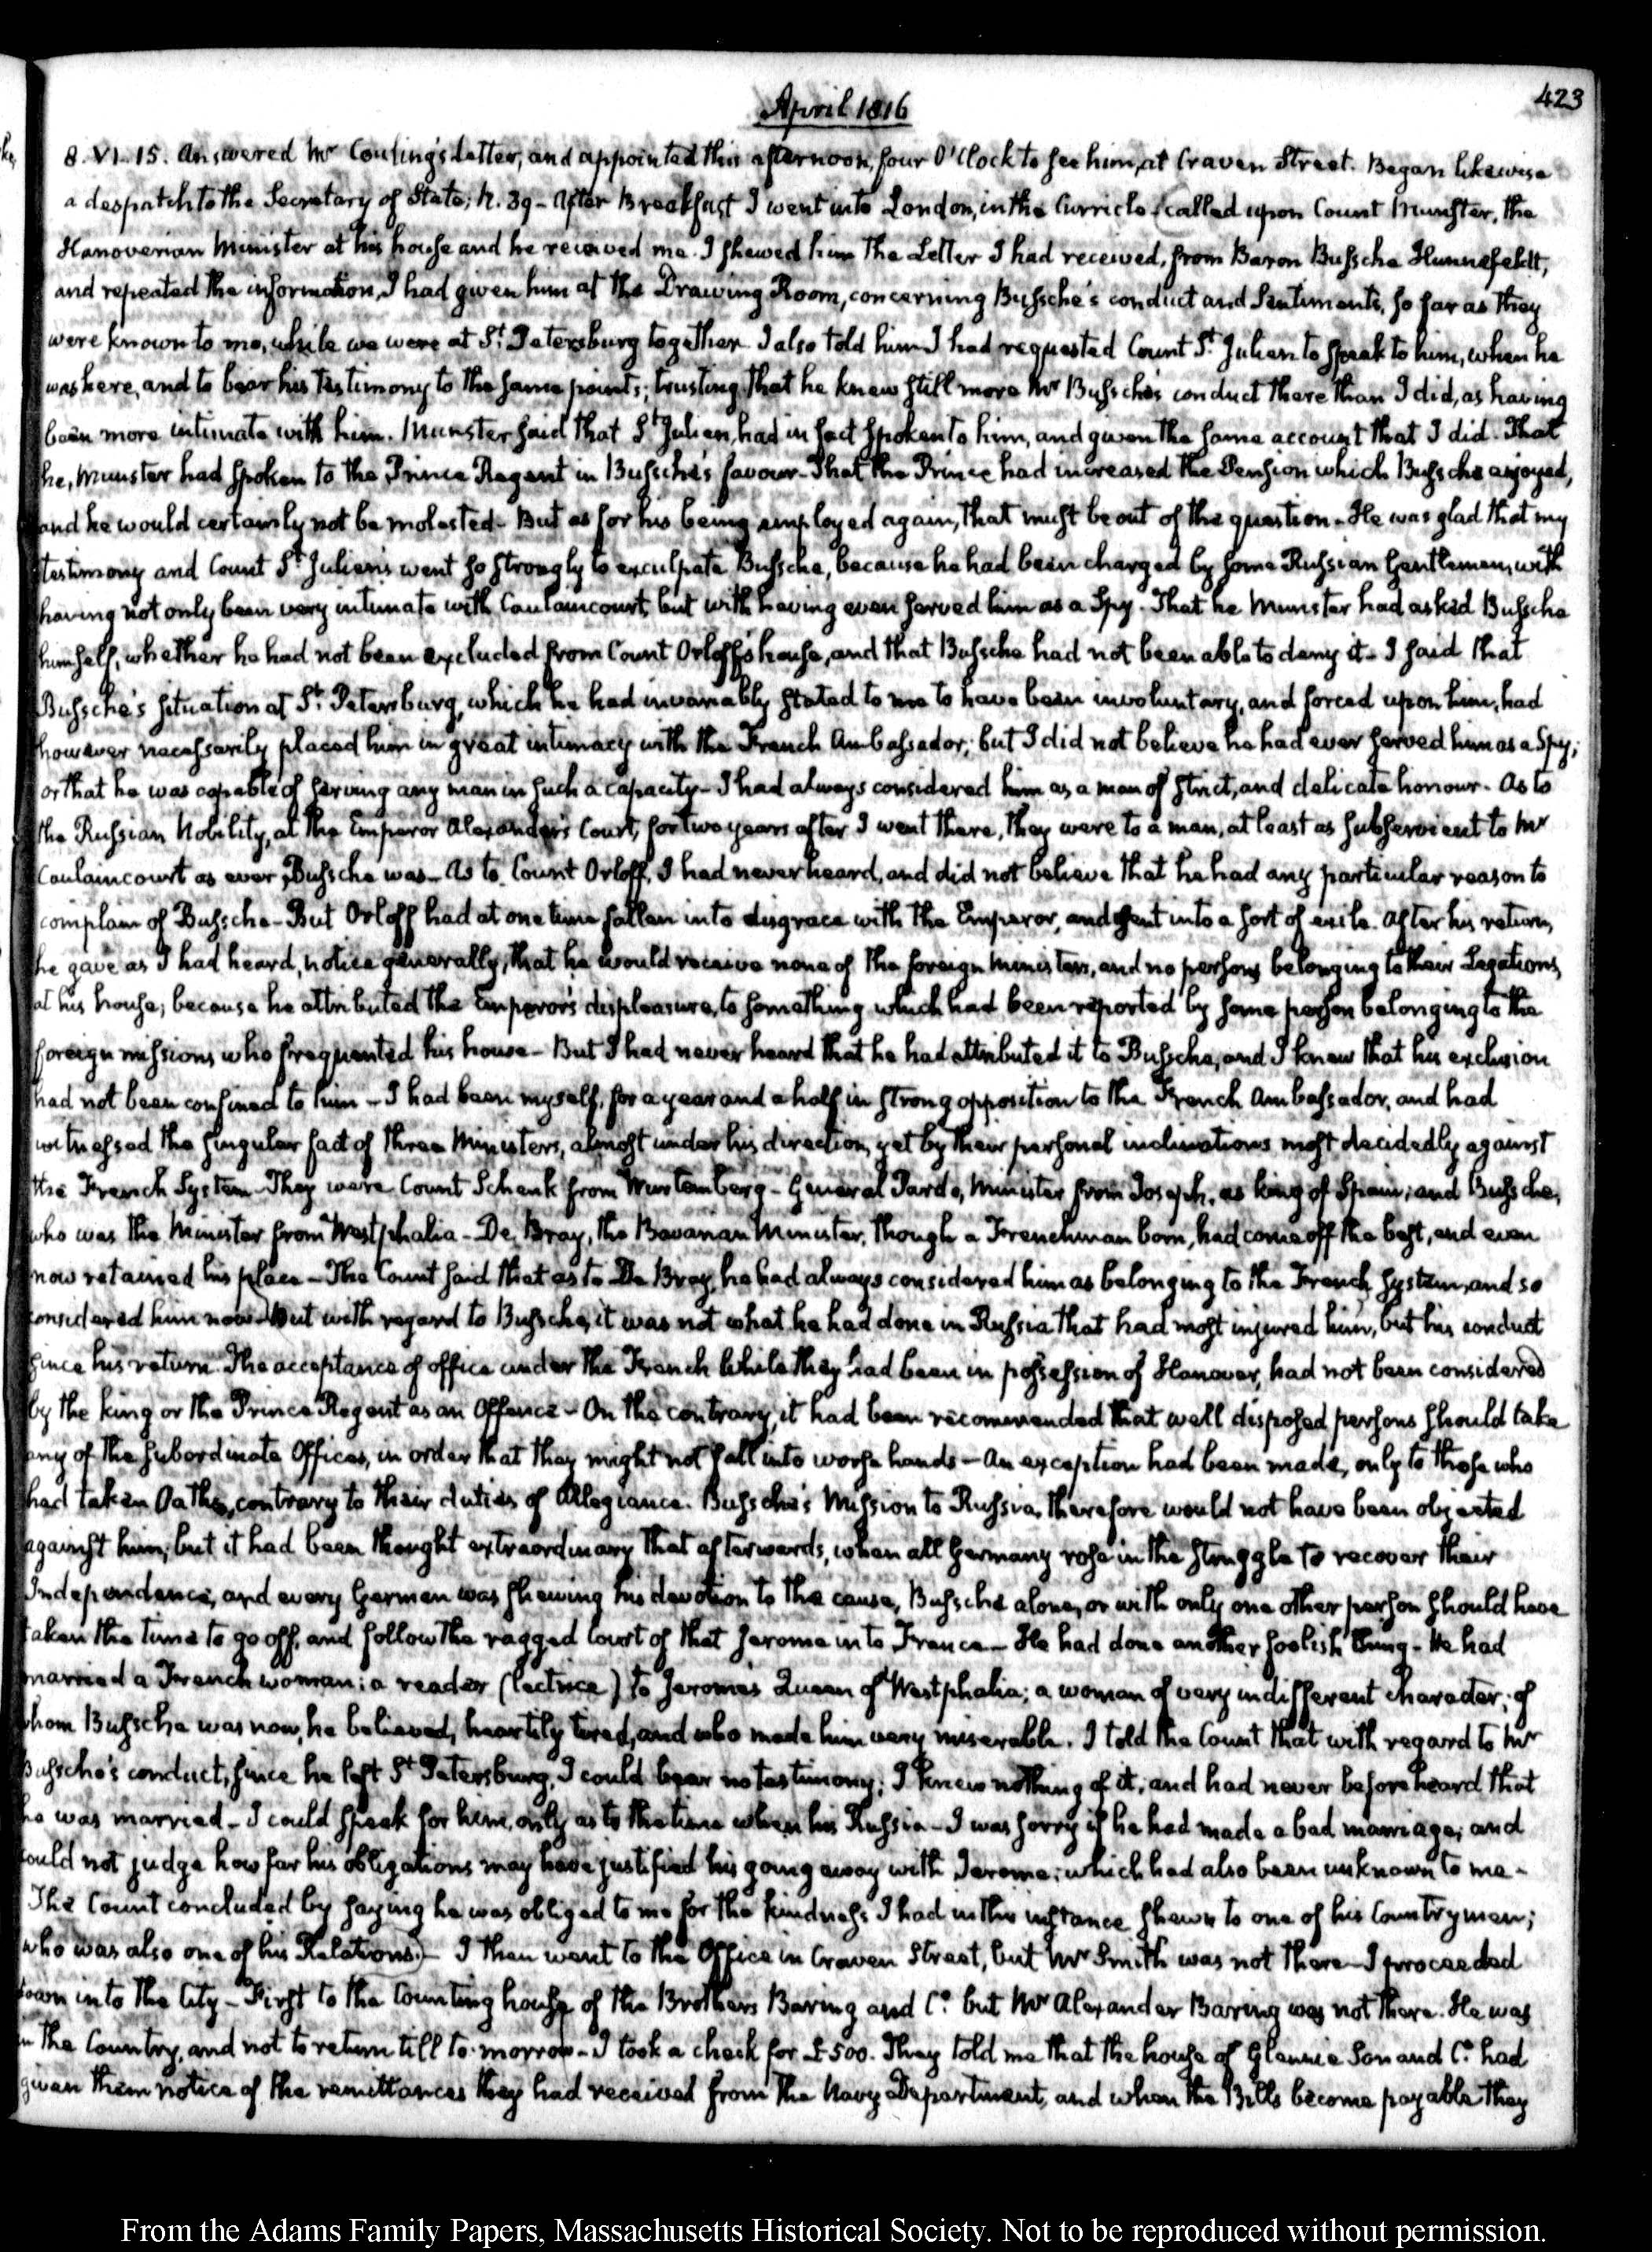 April 1816
423
8. VI. 15. Answered Mr Couling's Letter, and appointed this afternoon, four O'Clock to see him, at Craven Street. Began likewise
a despatch to the Secretary of State; N. 39 - After Breakfast I went into London, in the Curricle (called upon Count Munster, the
Hanoverian Minister at his house and he received me. I shewed him the Letter I had received, from Baron Bussche Hunnefeldt,
and repeated the information, I had given him at the Drawing Room, concerning Bussche's conduct and Sentiments, so far as they
were known to me, while we were at St. Petersburg together. I also told him I had requested Count St. Julien to speak to him, when he
was here, and to bear his testimony to the same points; trusting that he knew still more Mr Bussche's conduct there than I did, as having
been more intimate with him. Munster said that St Julien, had in fact spoken to him, and given the same account that I did. That
he, Munster had spoken to the Prince Regent in Bussche's favour - That the Prince had increased the Pension which Bussche enjoyed,
and he would certainly not be molested - But as for his being employed again, that must be out of the question - He was glad that my
testimony and Count St Julien's went so strongly to exculpate Bussche, because he had been charged by some Russian Gentlemen, with
having not only been very intimate with Caulaincourt, but with having even served him as a Spy. That he Munster had asked Bussche
himself, whether he had not been excluded from Count Orloff's house, and that Bussche had not been able to deny it - I said that
Bussche's situation at St. Petersburg, which he had invariably stated to me to have been involuntary, and forced upon him, had
however necessarily placed him in great intimacy with the French Ambassador; but I did not believe he had ever served him as a Spy;
or that he was capable of serving any man in such a capacity - I had always considered him as a man of strict, and delicate honour - As to
the Russian Nobility, at the Emperor Alexander's Court, for two years after I went there, they were to a man, at least as subservient to Mr
Caulaincourt as ever Bussche was - As to Count Orloff, I had never heard, and did not believe that he had any particular reason to
complain of Bussche - But Orloff had at one time fallen into disgrace with the Emperor, and sent into a sort of exile. After his return,
he gave as I had heard, notice generally, that he would receive none of the foreign Ministers, and no persons belonging to their Legations,
at his house; because he attributed the Emperor's displeasure, to something which had been reported by some person belonging to the
foreign missions who frequented his house - But I had never heard that he had attributed it to Bussche, and I knew that his exclusion
had not been confined to him - I had been myself, for a year and a half in strong opposition to the French Ambassador, and had
witnessed the singular fact of three Ministers, almost under his direction, yet by their personal inclinations most decidedly against
the French System - They were Count Schenk from Wurtemberg - General Pardo, Minister from Joseph, as king of Spain; and Bussche,
who was the Minister from Westphalia - De Bray, the Bavarian Minister, though a Frenchman born, had come off the best, and even
now retained his place - The Count said that as to De Bray, he had always considered him as belonging to the French System, and so
considered him now - But with regard to Bussche, it was not what he had done in Russia that had most injured him, but his conduct
since his return. The acceptance of office under the French while they had been in possession of Hanover, had not been considered
by the king or the Prince Regent as an Offence - On the contrary, it had been recommended that well disposed persons should take
any of the subordinate Offices, in order that they might not fall into worse hands - An exception had been made, only to those who
had taken Oaths, contrary to their duties of Allegiance. Bussche's Mission to Russia, therefore would not have been objected
against him; but it had been thought extraordinary that afterwards, when all Germany rose in the struggle to recover their
Independence, and every German was shewing his devotion to the cause, Bussche alone, or with only one other person should have
taken the time to go off, and follow the ragged Court of that Jerome into France - He had done another foolish thing - He had
married a French woman; a reader (lectrice) to Jerome's Queen of Westphalia; a woman of very indifferent character; of
whom Bussche was now, he believed, heartily tired, and who made him very miserable. I told the Count that with regard to Mr
Bussche's conduct, since he left St Petersburg, I could bear no testimony; I knew nothing of it; and had never before heard that
he was married - I could speak for him, only as to the time when his Russia - I was sorry if he had made a bad marriage; and
could not judge how far his obligations may have justified his going away with Jerome; which had also been unknown to me -
The Count concluded by saying he was obliged to me for the kindness I had in this instance shewn to one of his Countrymen;
who was also one of his Relations) - I then went to the Office in Craven Street, but Mr Smith was not there - I proceeded
down into the City - First to the Counting house of the Brothers Baring and Co. but Mr Alexander Baring was not there. He was
in the Country, and not to return till to-morrow - I took a check for £500. They told me that the house of Glennie Son and Co. had
given them notice of the remittances they had received from the Navy Department, and when the Bills become payable they
From the Adams Family Papers, Massachusetts Historical Society. Not to be reproduced without permission.